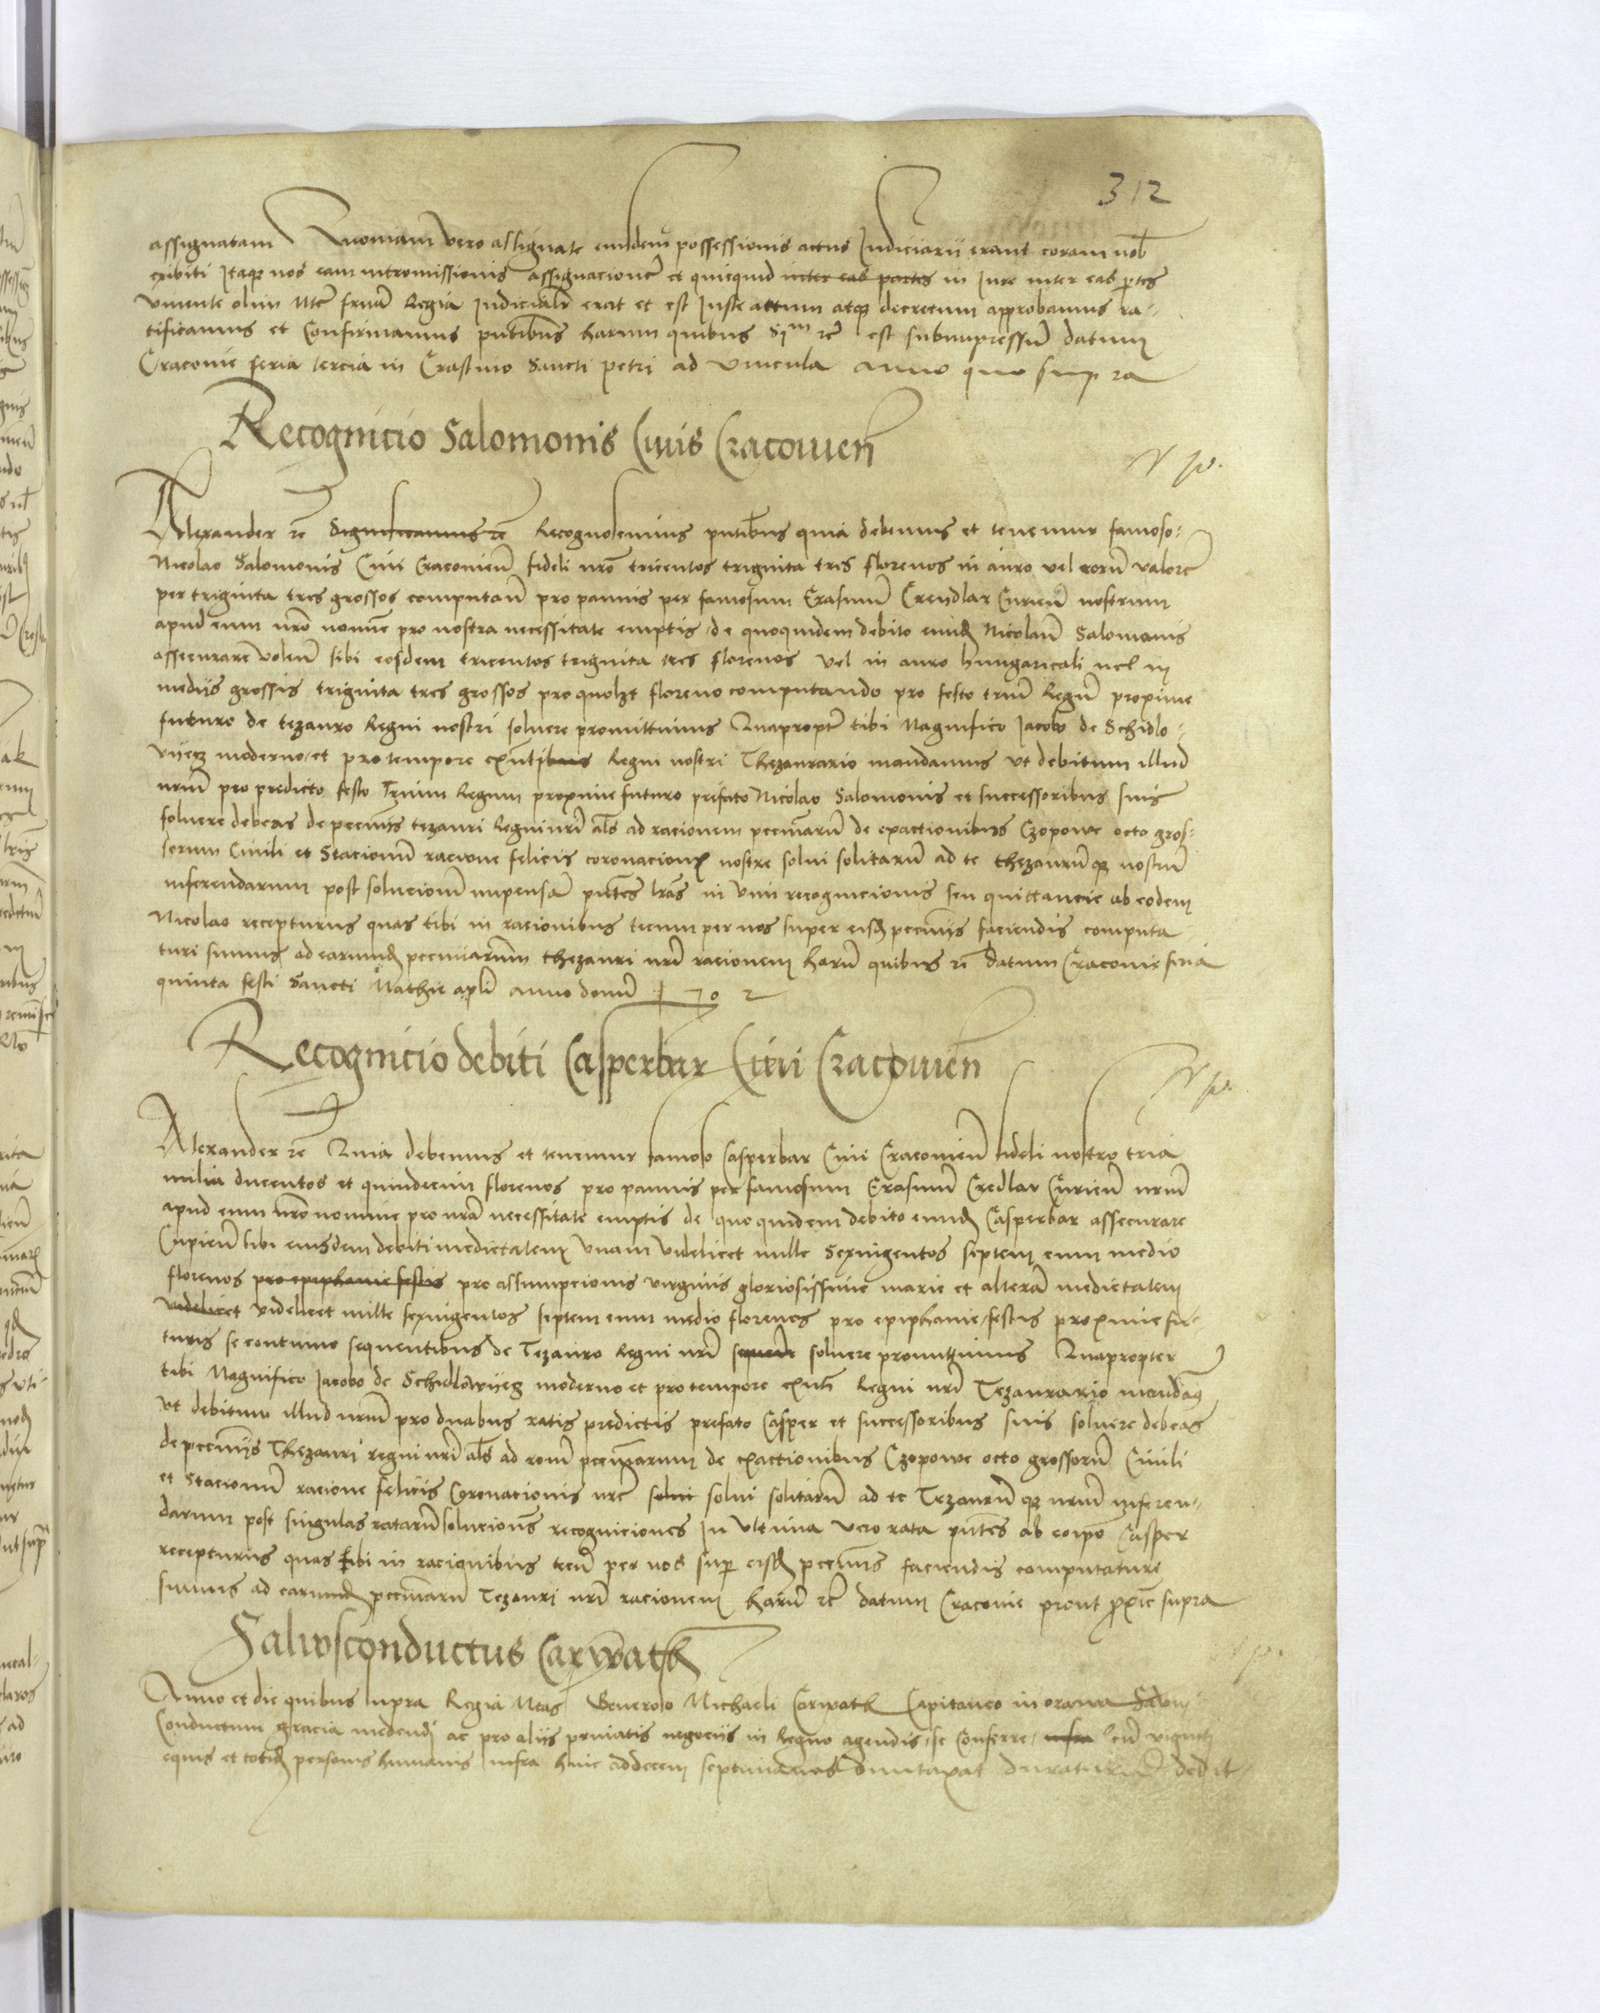 312
assignatam Quoniam vero assignate eiusdem possessionis actus Iudiciarii erant coram nob
exibiti Itaqz nos eam intromissionis assignacionem et quicquid inter eas partes in Iure inter eas partes
vivente olim Mte frium Regia Iudicialr erat et est Iuste actum atqz decretum approbamus ra-
tificamus et Confirmamus pntibus harum quibus Sim rc est subimpressum datum
Cracovie feria tercia in Crastino Sancti petri ad vincula anno quo supra
Recognicio Salomonis Civis Cracovien
Alexander rc Significamus rc Recognoscimus pntibus quia debemus et tenemur famoso
Nicolao Salomonis Civi Cracovien fideli nro tricentos triginta tres florenos in auro vel eorum valore
per triginta tres grossos computan pro pannis per famosum Erasmum Crendlar Curien nostrum
apud eum nro nomine pro nostra necessitate emptis de quoquidem debito eund Nicolaum Salomonis
assecurare volen sibi eosdem tricentos triginta tres florenos vel in auro hungaricali vel in
mediis grossis triginta tres grossos pro quolzt floreno computando pro festo trium Regum proxime
futuro de tezauro Regni nostri solvere promittimus Quapropter tibi Magnifico Jacobo de Schidlo-
vijecz moderno et pro tempore existentibus Regni nostri Thezaurario mandamus ut debitum illud
nrum pro predicto festo Trium Regum proxime futuro prefato Nicolao Salomonis et successoribus suis
solvere debeas de pecuniis tezauri Regni nri als ad racionem pecuniarum de exactionibus Czopowe octo gros-
sorum Civili et Stacionum racione felicis coronacionis nostre solvi solitarum ad te thezaurumqz nostrum
inferendarum post solucionem impensam pntes lras in vim recognicionis seu quittancie ab eodem
Nicolao recepturus quas tibi in racionibus tecum per nos super eisd pecuniis faciendis computa
turi sumus ad earumd pecuniarum thezauri nri racionem harum quibus rc Datum Cracovie feria
quinta festi Sancti Mathie apli anno domini 1 5 0 2
Recognicio debiti Casperbar Civi Cracovien
Alexander rc Quia debemus et tenemur famoso Casperbar Civi Cracovien fideli nostro tria
milia ducentos et quindecim florenos pro pannis per famosum Erasmum Credlar Curien nrum
apud eum nro nomine pro nra necessitate emptis de quo quidem debito eund Casperbar assecurare
Cupien sibi eiusdem debiti medietatem unam videlicet mille Sexingentos septem cum medio
florenos pro epiphanie festis pro assumpcionis virginis gloriosissime marie et alteram medietatem
videlicet videlicet mille sexingentos septem cum medio florenos pro epiphanie festis proxime fu-
turis se continuo sequentibus de Tezauro Regni nri sequen solvere promittimus Quapropter
tibi Magnifico Jacobo de Schidlowijecz moderno et pro tempore existen Regni nri Tezaurario mandamus
ut debitum illud nrum pro duabus ratis predictis prefato Casper et successoribus suis solvere debeas
de pecuniis Thezauri regni nri als ad ronem pecuniarum de exactionibus Czopowe octo grossorum Civili
et Stacionum racione felicis Coronacionis nre solvi solvi solitarum ad te Tezaurumqz nrum inferen-
darum post singulas ratarum soluciones recogniciones In ultima vero rata pntes ab eoipo Casper
recepturus quas tibi in racionibus tecum per nos super eisd pecuniis faciendis computature
sumus ad earumd pecuniarum Tezauri nri racionem harum rc datum Cracovie prout proxime supra
Salvusconductus Carwath
Anno et die quibus supra Regia Mtas Generoso Michaeli Carwath Capitaneo in orawa Salvu-
Conductum gracia medendi ac pro aliis privatis negociis in Regno agendis se Conferre infra cum viginti
equis et totid personis humanis infra hinc ad decem septimanas dumtaxat duraturum dedit